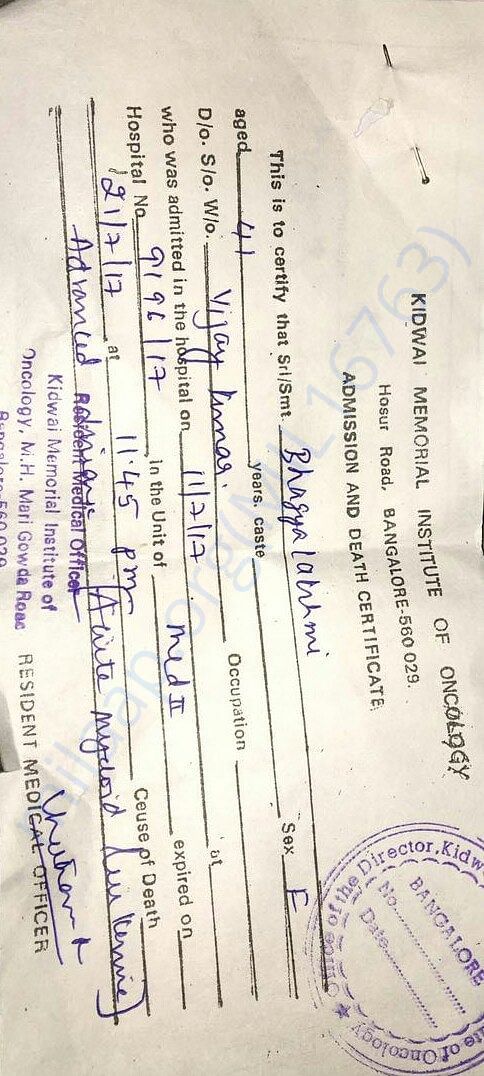 KIDWAI MEMORIAL INSTITUTE OF ONCOLOGY
Hosur Road, BANGALORE-560 029.
ADMISSION AND DEATH CERTIFICATE
This is to certify that Sri/Smt. Bhagya lakshmi Sex F
aged 41 years. caste Occupation
D/o. S/o. W/o. Vijay Kumar.
who was admitted in the hospital on 11/7/17 at
Hospital No 9196/17, in the Unit of Med II expired on
21/7/17 at 11:45 pm Ceuse of Death
Advanced disease (Acute myeloid Leukemia)
Resident Medical Officer
Kidwai Memorial Institute of
Oncology, M.H. Mari Gowda Road
Bangalore-560 029
RESIDENT MEDICAL OFFICER
Office of the Director, Kidw
ate of Oncology
BANGALORE
No
Date
milaap.org(MIL16763)